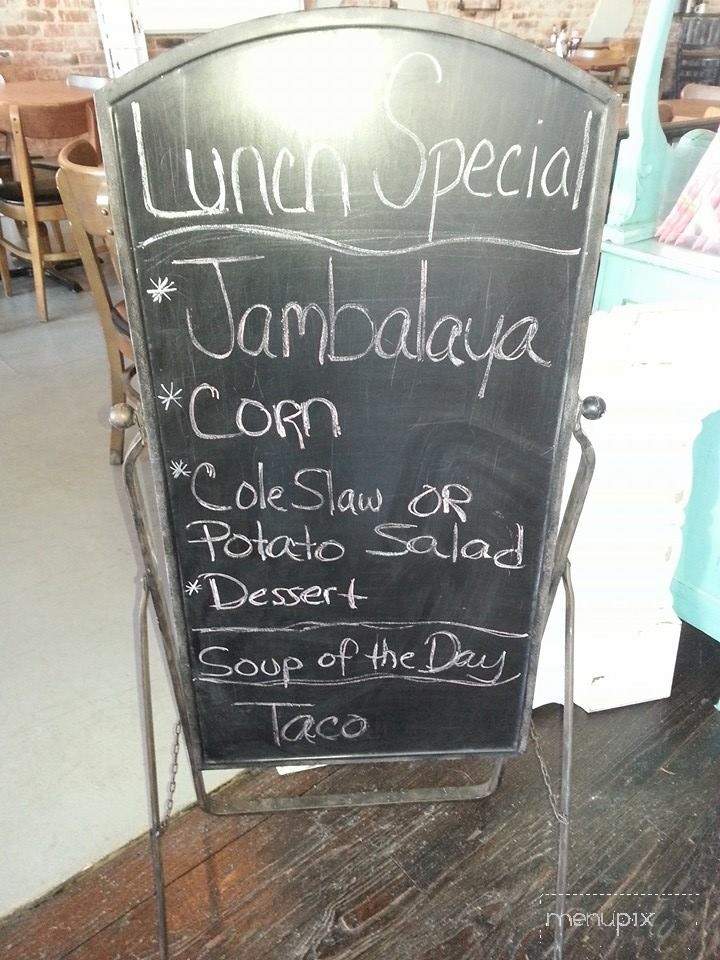 Lunch Special
* Jambalaya
* Corn
* Cole Slaw OR
Potato Salad
* Dessert
Soup of the Day
Taco
menupix